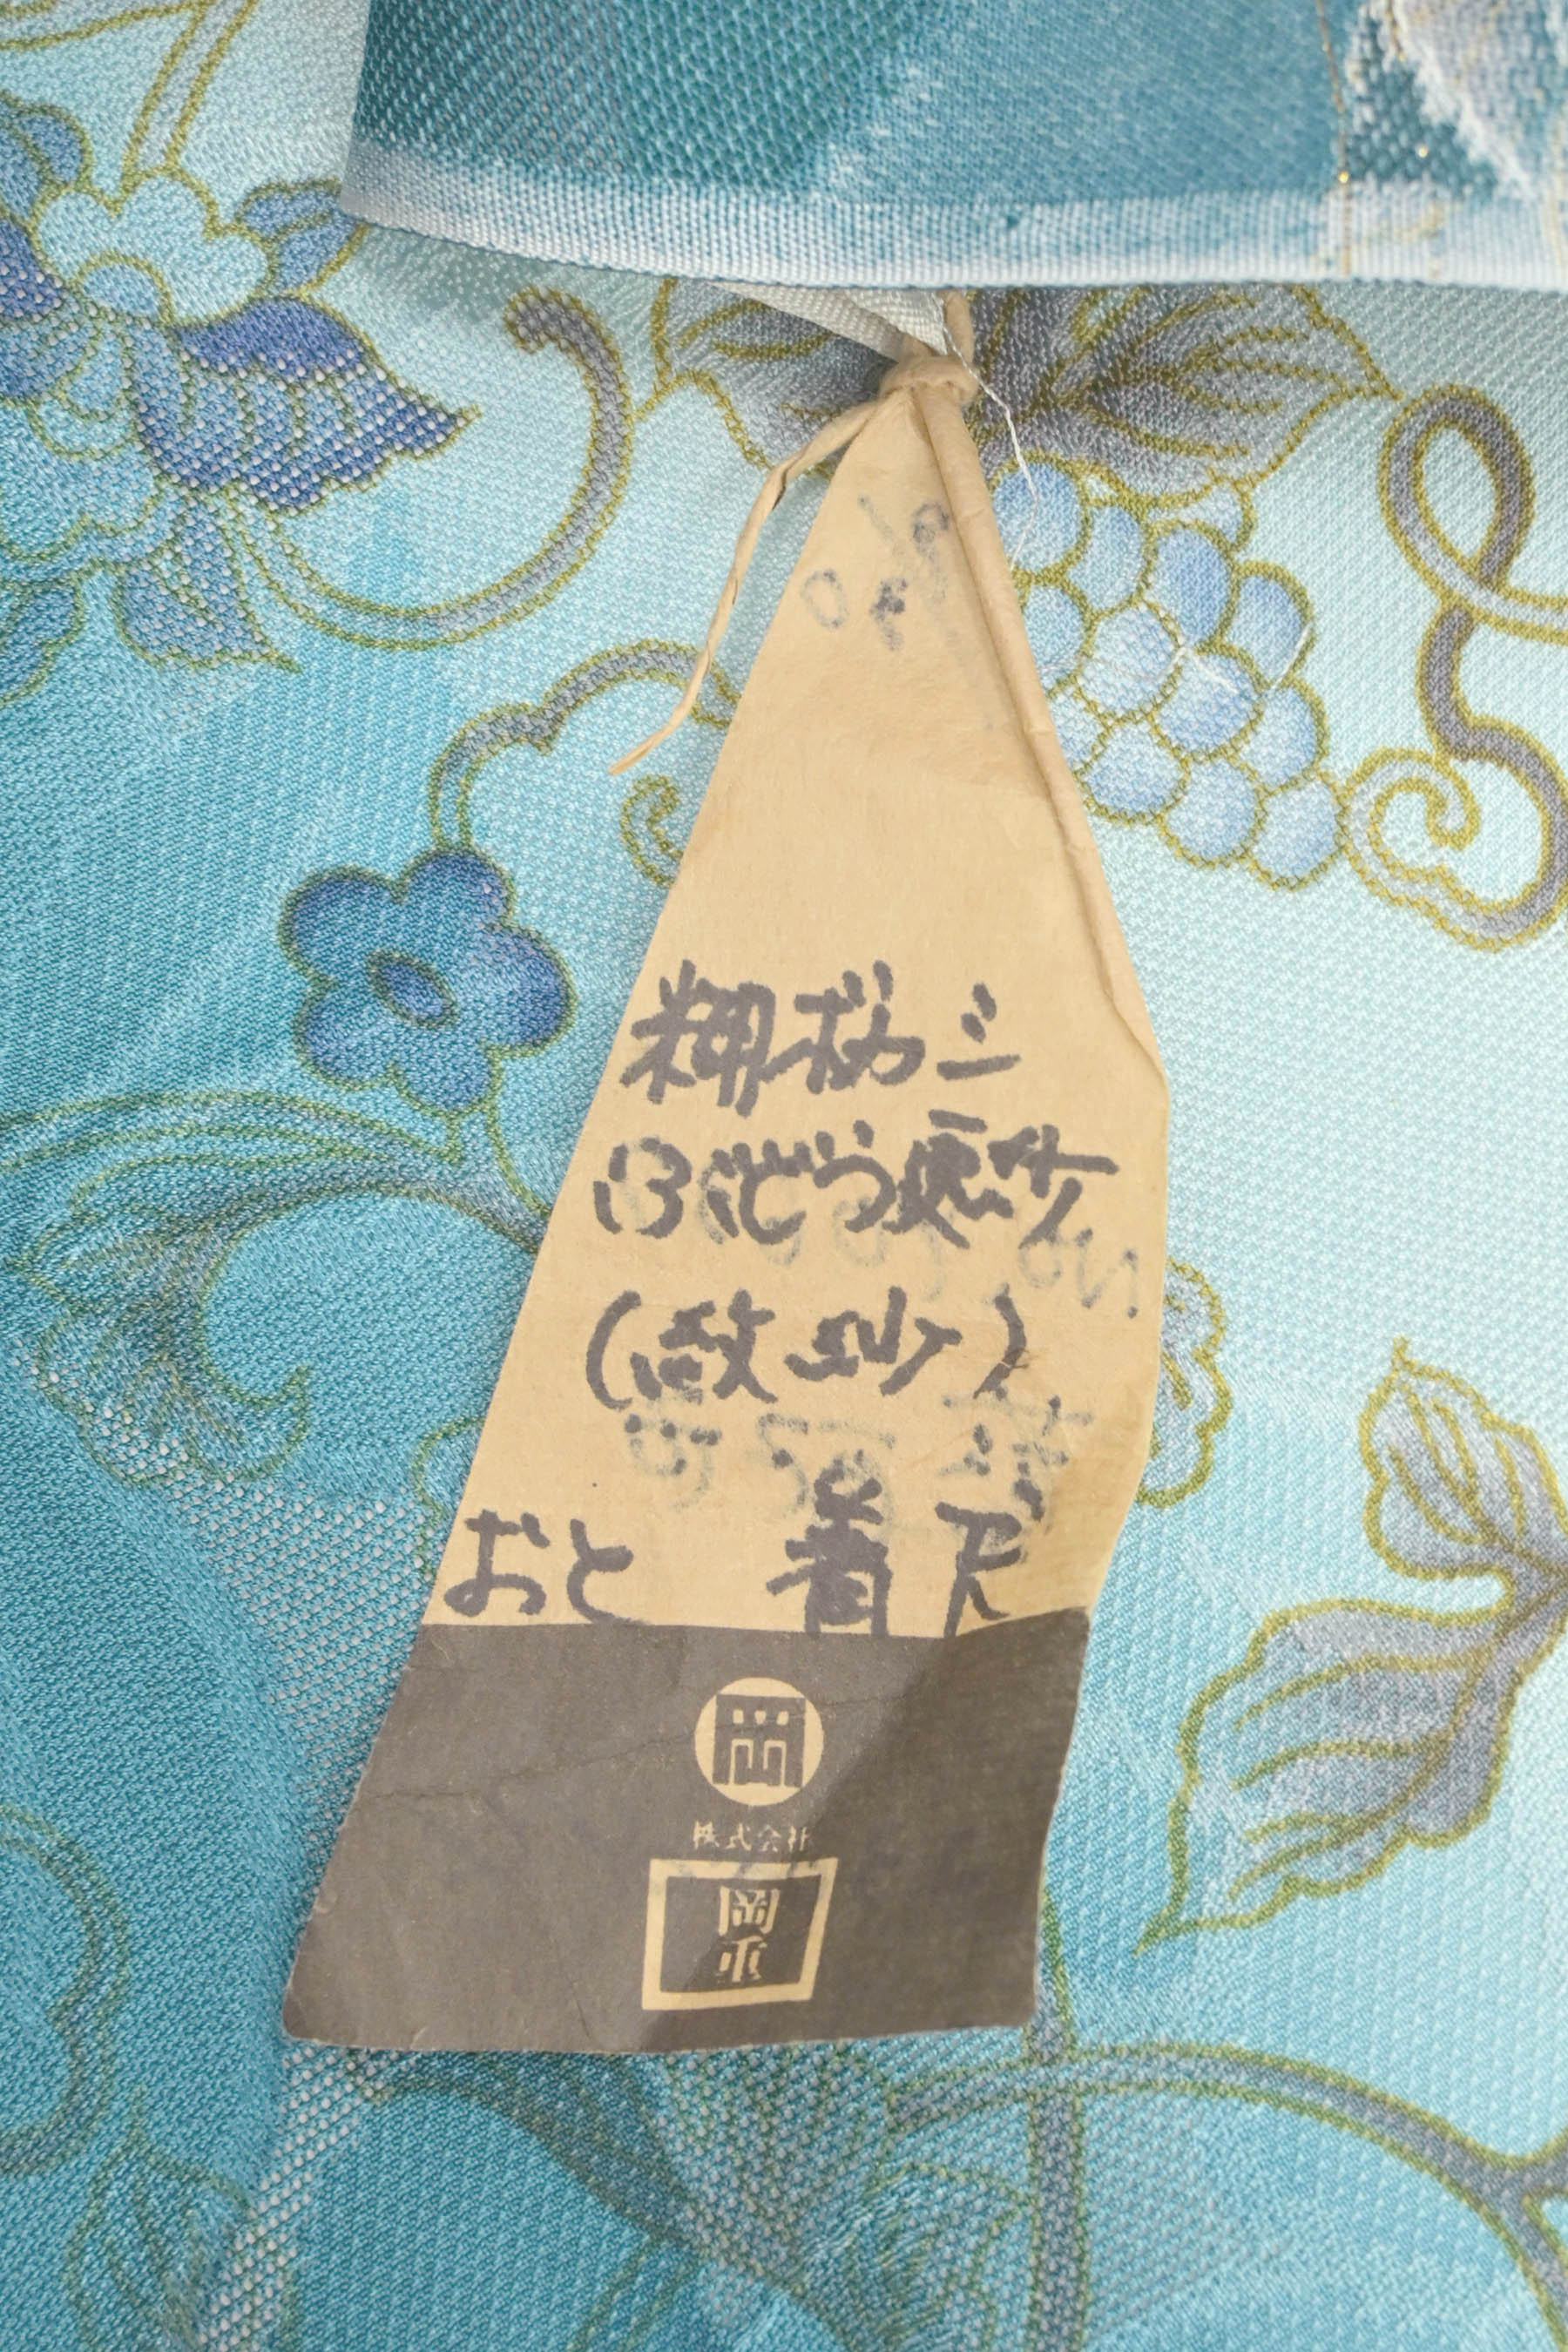 糊ボカシ
ぶどう更紗
(紋紗)
おと 着尺
岡
株式会社
岡重